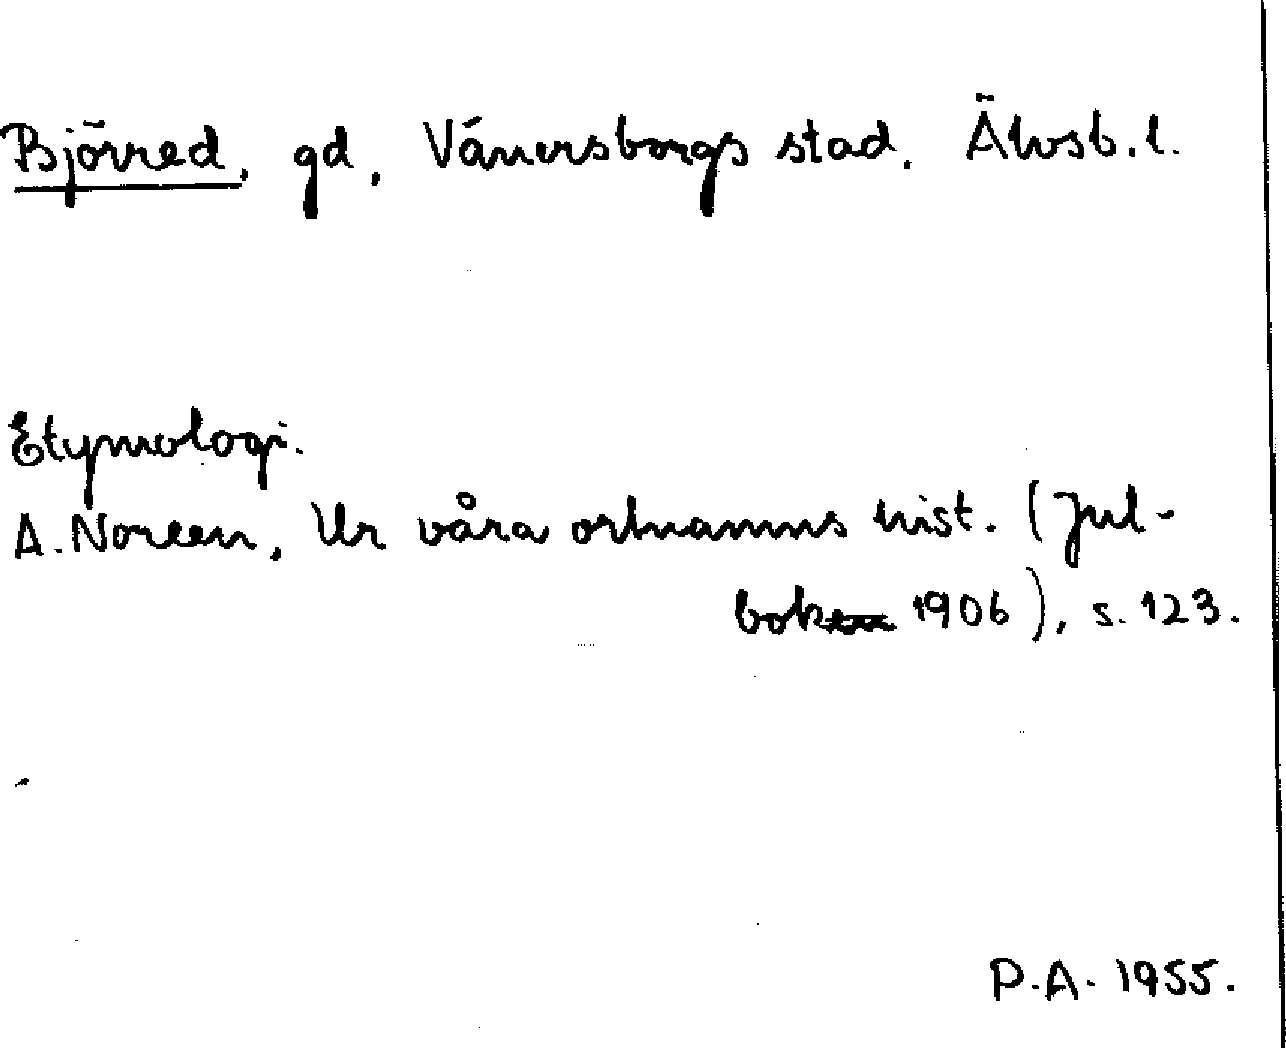 Björred, gd, Vänersborgs stad. Älvsb.l.
Etymologi.
A. Noreen, Ur våra ortnamns hist. (Jul-
boken 1906), s. 123.
P.A. 1955.